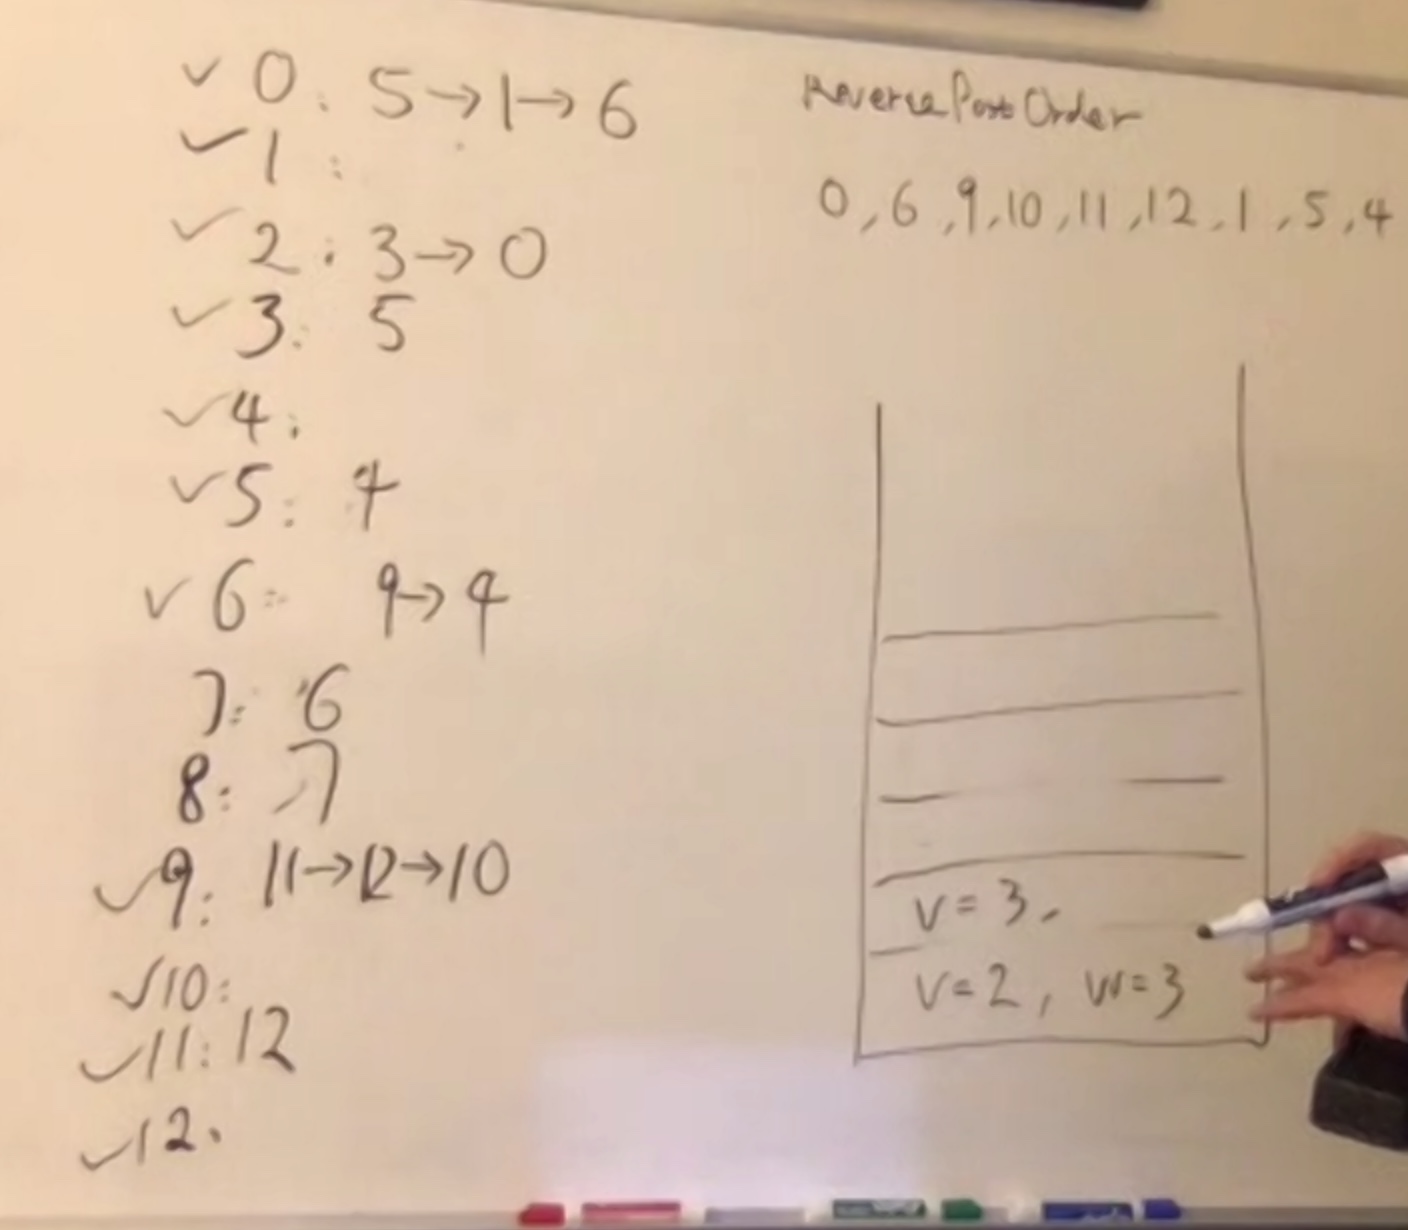 ✓ 0: 5→1→6
✓ 1:
✓ 2: 3→0
✓ 3: 5
✓ 4:
✓ 5: 4
✓ 6: 9→4
7: 6
8: 7
✓ 9: 11→12→10
✓ 10:
✓ 11: 12
✓ 12.
Reverse Post Order
0, 6, 9, 10, 11, 12, 1, 5, 4
v=3,
v=2, w=3